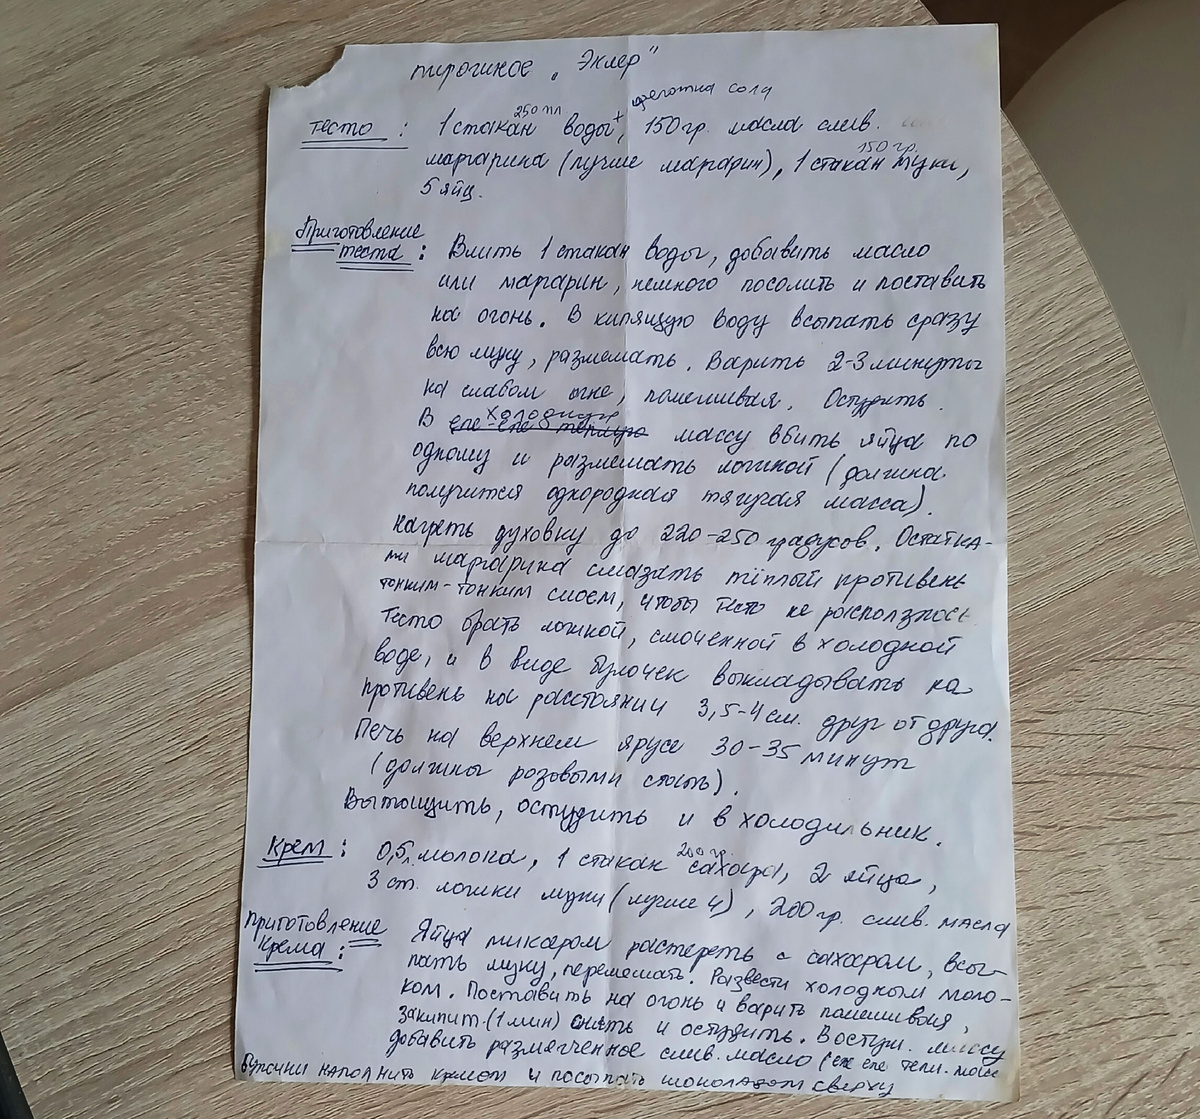 пирогиное „Эклер"
щепотка соли
250 мл
тесто : 1 стакан воды+, 150 гр. масла слив.
150 гр.
маргарина (лучше маргарин), 1 стакан муки,
5 яиц.
Приготовление
теста : Влить 1 стакан воды, добавить масло
или маргарин, немного посолить и поставить
на огонь. В кипящую воду всыпать сразу
всю муку, размешать. Варить 2-3 минуты
на слабом огне, помешивая. Остудить.
холодную
В еле-еле теплую массу вбить яйца по
одному и размешать ложкой (должна
получится однородная тягучая масса).
Нагреть духовку до 220-250 градусов. Остатка-
ми маргарина смазать тёплый противень
тонким-тонким слоем, чтобы тесто не расползлось.
Тесто брать ложкой, смоченной в холодной
воде, и в виде булочек выкладывать на
противень на расстоянии 3,5-4 см. друг от друга.
Печь на верхнем ярусе 30-35 минут
(должны розовыми стать).
Вытащить, остудить и в холодильник.
200 гр.
Крем : 0,5 л. молока, 1 стакан сахара, 2 яйца,
3 ст. ложки муки (лучше 4), 200 гр. слив. масла
Приготовление
крема : Яйца миксером растереть с сахаром, всы-
пать муку, перемешать. Развести холодным моло-
ком. Поставить на огонь и варить помешивая,
закипит.(1 мин) снять и остудить. В остуж. массу
добавить размягченное слив. масло (еле еле тепл. масс
Булочки наполнить кремом и посыпать шоколадом сверху